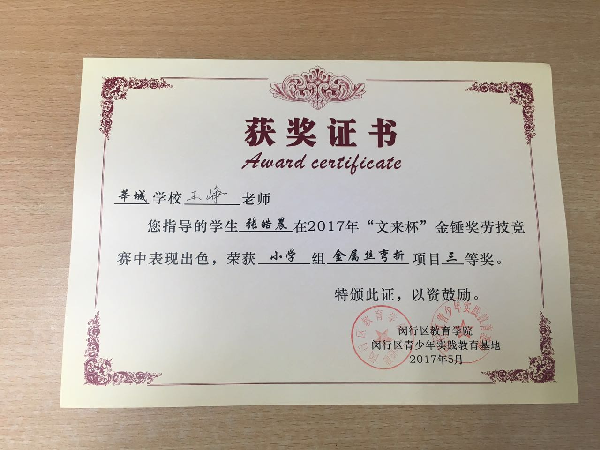 获奖证书
Award certificate
莘城学校王峰老师
您指导的学生张皓晨在2017年“文来杯”金锤奖劳技竞
赛中表现出色，荣获小学组金属丝弯折项目三等奖。
特颁此证，以资鼓励。
闵行区教育学院
闵行区青少年实践教育基地
2017年5月